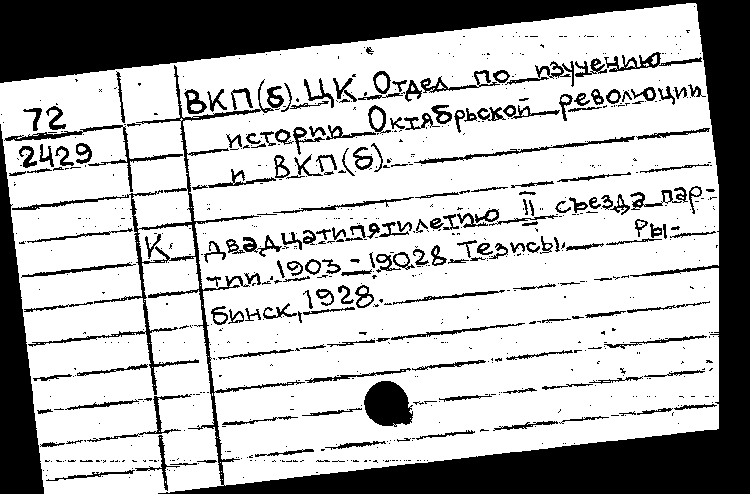 72
2429
ВКП(б). ЦК. Отдел по изучению
истории Октябрьской революции
и ВКП(б).
К двадцатипятилетию II съезда пар-
тии. 1903-19028. Тезисы. Ры-
бинск, 1928.